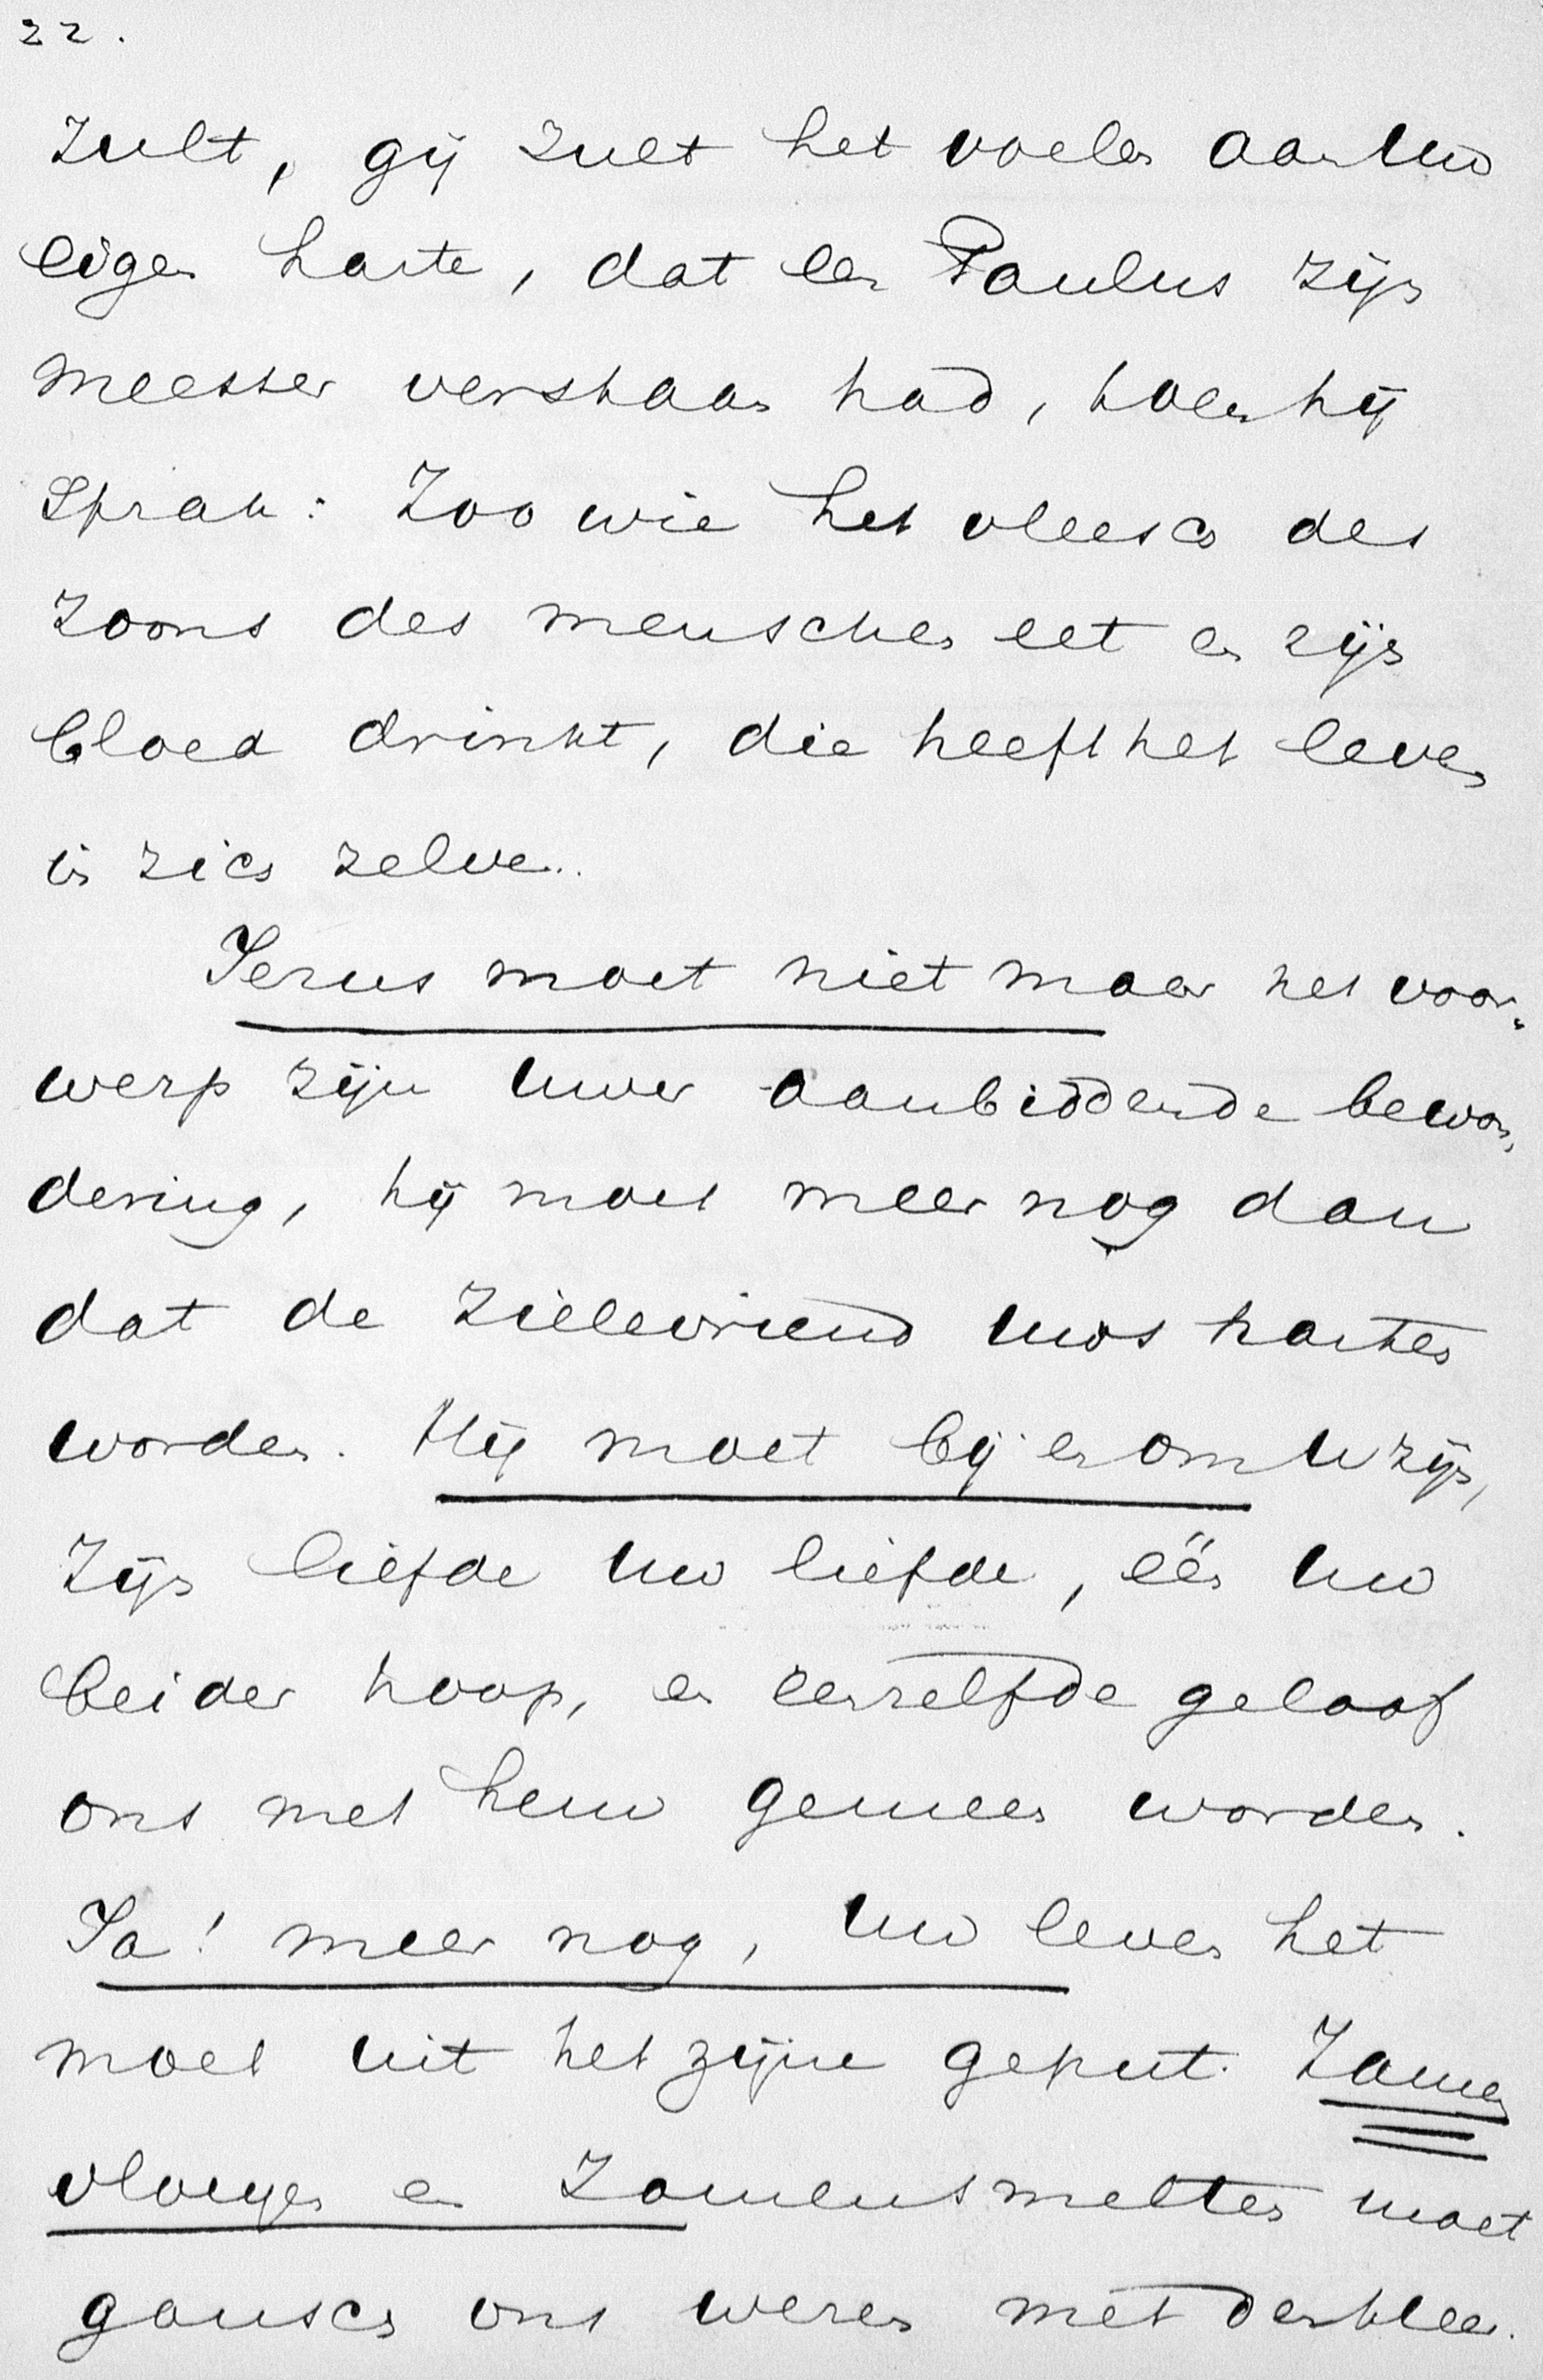 22.
Zult, gij zult het voelen aan Uw
eigen harte, dat een Paulus zijn
meester verstaan had, toen hij
Sprak: Zoo wie het vleesch des
Zoons des menschen eet en zijn
bloed drinkt, die heeft het leven
in zich zelve..
Jezus moet niet maar het voor-
werp zijn Uwer aanbiddende bewon-
dering, hij moet meer nog dan
dat de Zielevriend Uws harten
worden. Hij moet bij en om U zijn,
Zijn liefde Uw liefde, één Uw
beider hoop, en eenzelfde geloof
ons met hem gemeen worden.
Ja! meer nog, Uw leven het
moet uit het zijne geput. Zamen
vloeyen en Zamensmelten moet
gansch ons wezen met den